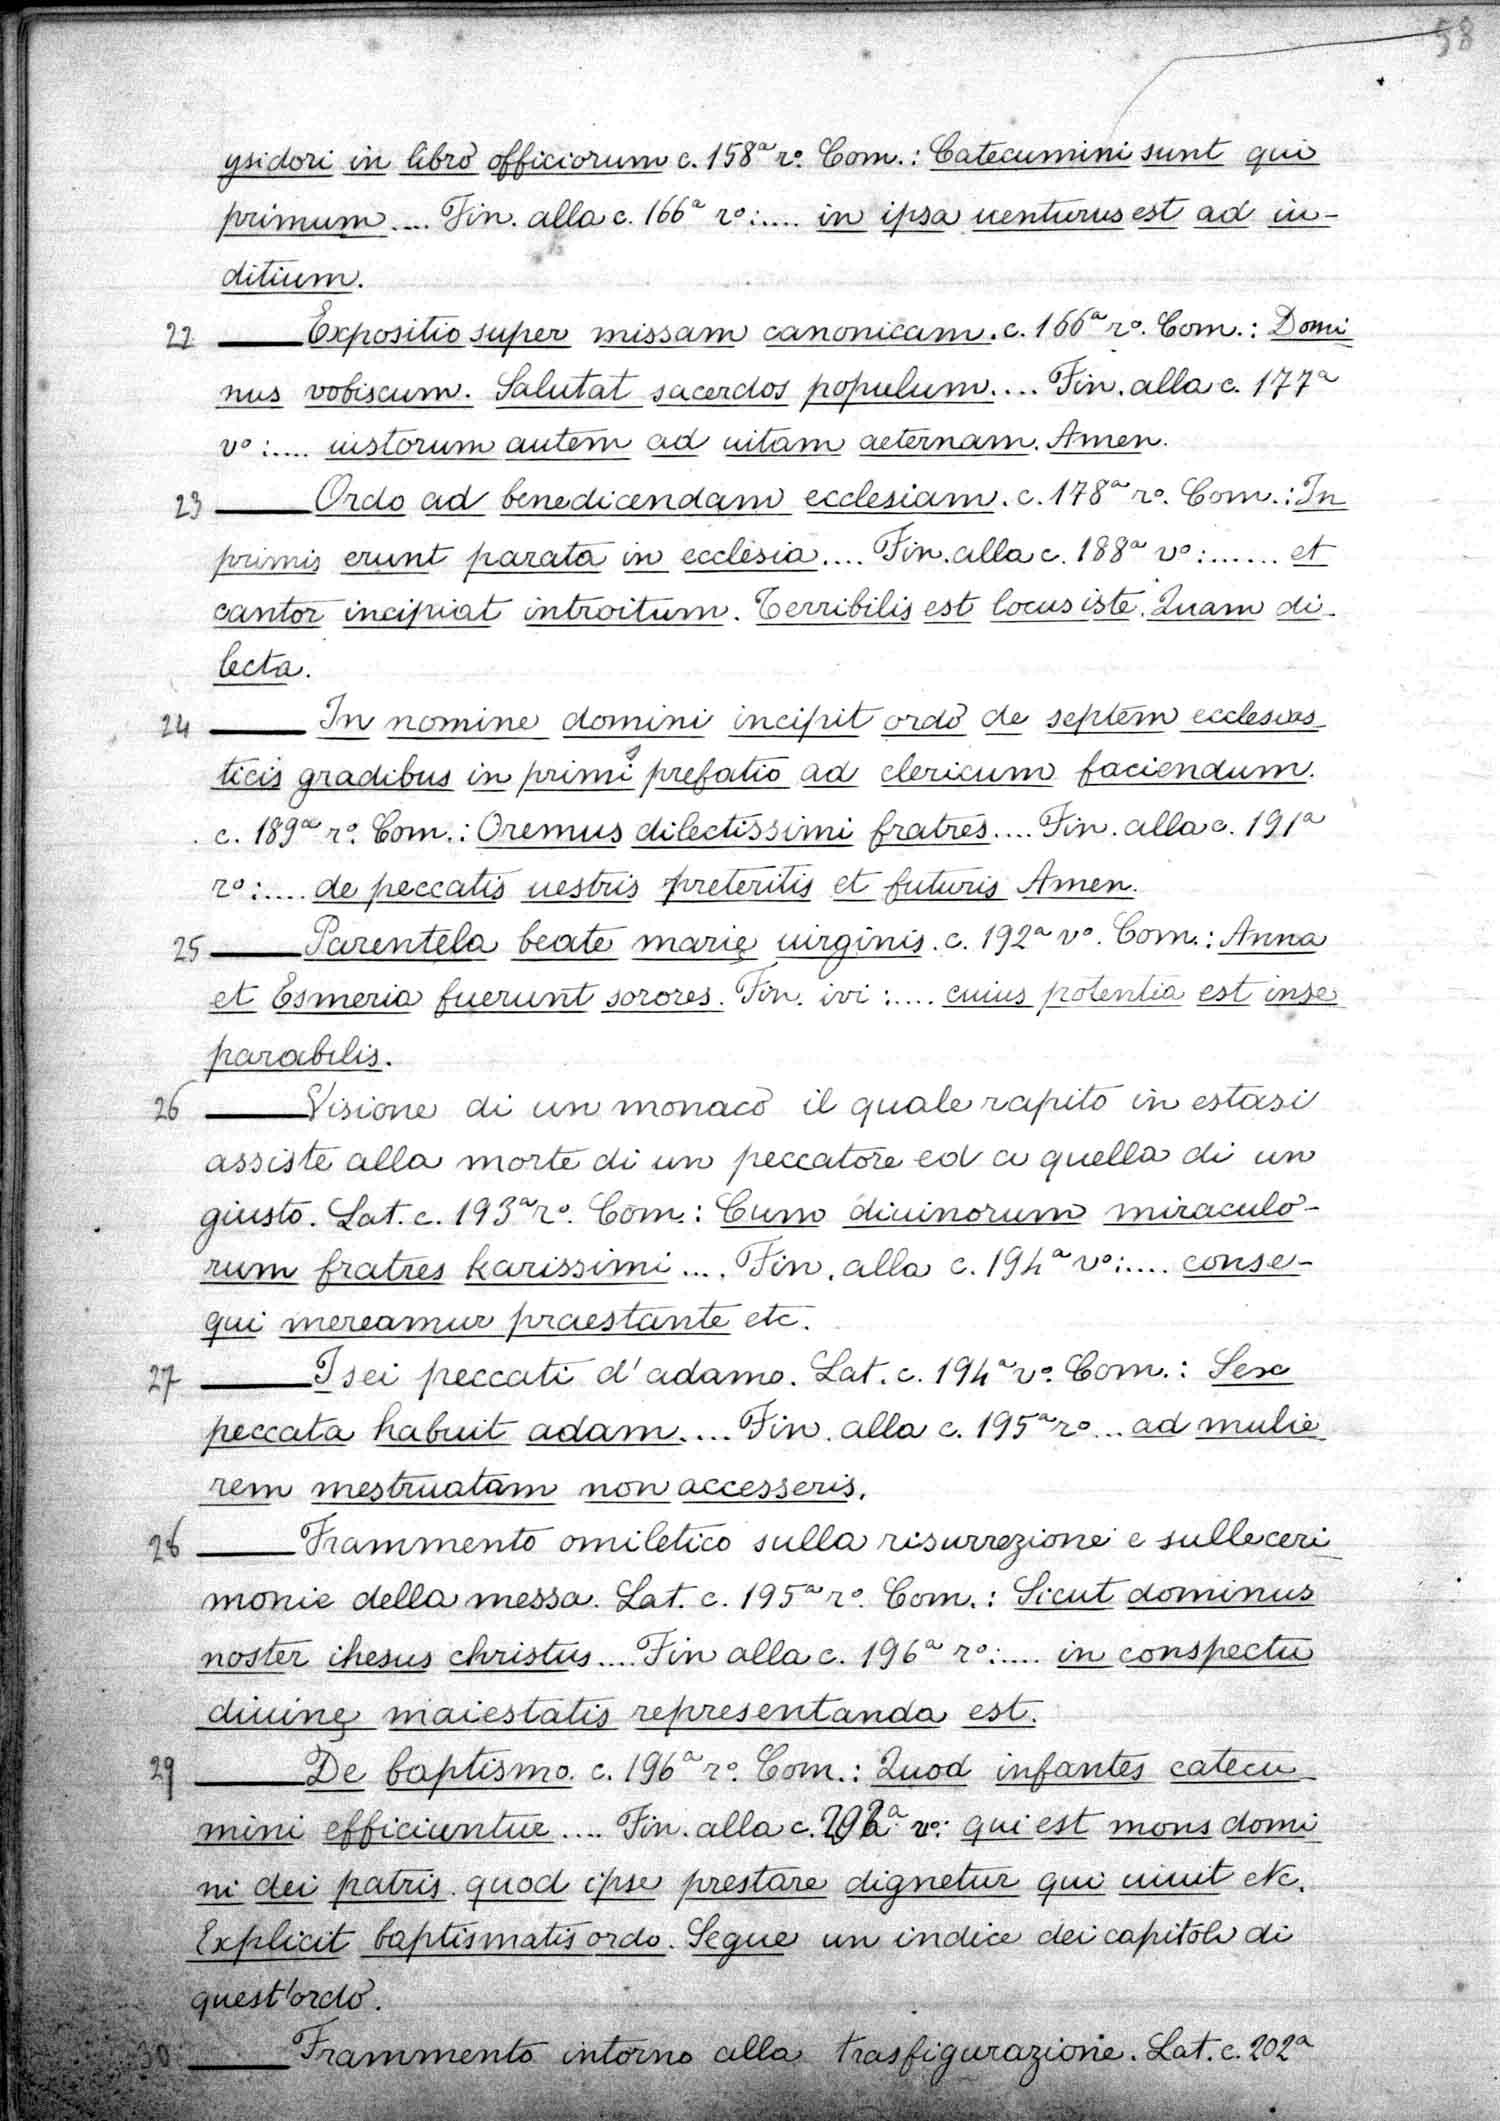 58
ysidori in libro officiorum c. 158ª rº. Com.: Catecumini sunt qui
primum.... Fin. alla c. 166ª rº:.... in ipsa uenturus est ad iu-
ditium.
22 ——— Expositio super missam canonicam. c. 166ª rº. Com.: Domi
nus vobiscum. Salutat sacerdos populum.... Fin. alla c. 177ª
vº:.... iustorum autem ad uitam aeternam. Amen.
23 ——— Ordo ad benedicendam ecclesiam. c. 178ª rº. Com.: In
primis erunt parata in ecclesia.... Fin. alla c. 188ª vº:...... et
cantor incipiat introitum. Terribilis est locus iste. Quam di-
lecta.
24 ——— In nomine domini incipit ordo de septem ecclesias
ticis gradibus in primis prefatio ad clericum faciendum.
c. 189ª rº. Com.: Oremus dilectissimi fratres.... Fin. alla c. 191ª
rº:.... de peccatis uestris preteritis et futuris Amen.
25 ——— Parentela beate marię uirginis. c. 192ª vº. Com.: Anna
et Esmeria fuerunt sorores. Fin. ivi:.... cuius potentia est inse
parabilis.
26 ——— Visione di un monaco il quale rapito in estasi
assiste alla morte di un peccatore ed a quella di un
giusto. Lat. c. 193ª rº. Com.: Cum diuinorum miraculo-
rum fratres karissimi.... Fin. alla c. 194ª vº:.... conse-
qui mereamur praestante etc.
27 ——— I sei peccati d'adamo. Lat. c. 194ª vº. Com.: Sex
peccata habuit adam.... Fin. alla c. 195ª rº... ad mulie
rem mestruatam non accesseris.
28 ——— Frammento omiletico sulla risurrezione e sulle ceri
monie della messa. Lat. c. 195ª rº. Com.: Sicut dominus
noster ihesus christus.... Fin alla c. 196ª rº:.... in conspectu
diuinę maiestatis representanda est.
29 ——— De baptismo. c. 196ª rº. Com.: Quod infantes catecu
mini efficiuntur.... Fin. alla c. 202ª vº: qui est mons domi
ni dei patris quod ipse prestare dignetur qui uiuit etc.
Explicit baptismatis ordo. Segue un indice dei capitoli di
quest'ordo.
30 ——— Frammento intorno alla trasfigurazione. Lat. c. 202ª